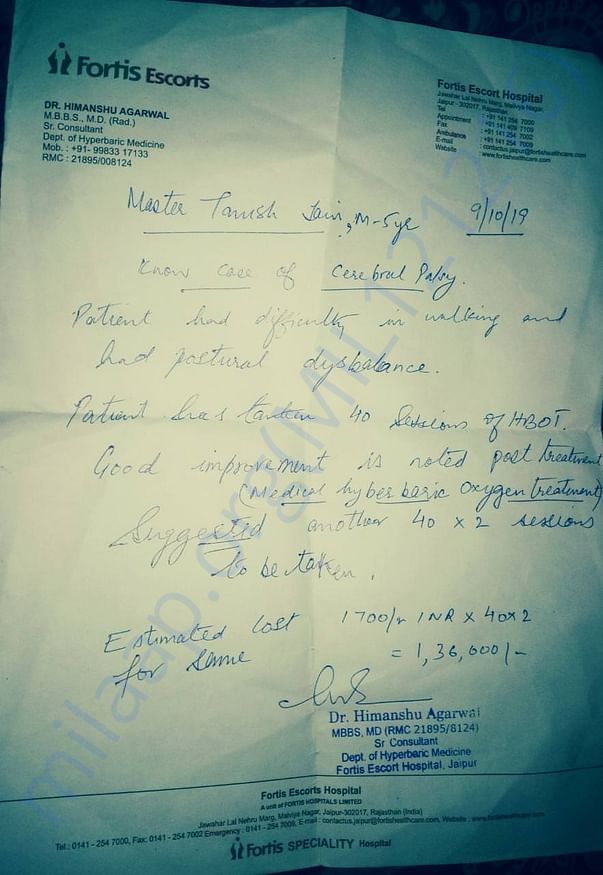 Fortis Escorts
DR. HIMANSHU AGARWAL
M.B.B.S., M.D. (Rad.)
Sr. Consultant
Dept. of Hyperbaric Medicine
Mob. : +91- 99833 17133
RMC : 21895/008124
Fortis Escort Hospital
Jawahar Lal Nehru Marg, Malviya Nagar,
Jaipur - 302017, Rajasthan.
Tel : +91 141 254 7000
Appointment : +91 141 409 7109
Fax : +91 141 254 7002
Ambulance : +91 141 254 7009
E-mail : contactus.jaipur@fortishealthcare.com
Website : www.fortishealthcare.com
Master Tanish Jain, M-5yr 9/10/19
Know case of Cerebral Palsy.
Patient had difficulty in walking and
had postural dysbalance.
Patient has 40 Sessions of HBOT.
Good improvement is noted post treatment
(Medical hyberbaric Oxygen treatment)
Suggested another 40 x 2 sessions
to be taken.
Estimated Cost 1700/- INR x 40x2
for same = 1,36,000/-
Dr. Himanshu Agarwal
MBBS, MD (RMC 21895/8124)
Sr Consultant
Dept. of Hyperbaric Medicine
Fortis Escort Hospital, Jaipur
Fortis Escorts Hospital
A unit of FORTIS HOSPITALS LIMITED
Jawahar Lal Nehru Marg, Malviya Nagar, Jaipur-302017, Rajasthan (India)
Tel.: 0141 - 254 7000, Fax: 0141 - 254 7002 Emergency : 0141 - 254 7009, E-mail : contactus.jaipur@fortishealthcare.com, Website : www.fortishealthcare.com
Fortis SPECIALITY Hospital